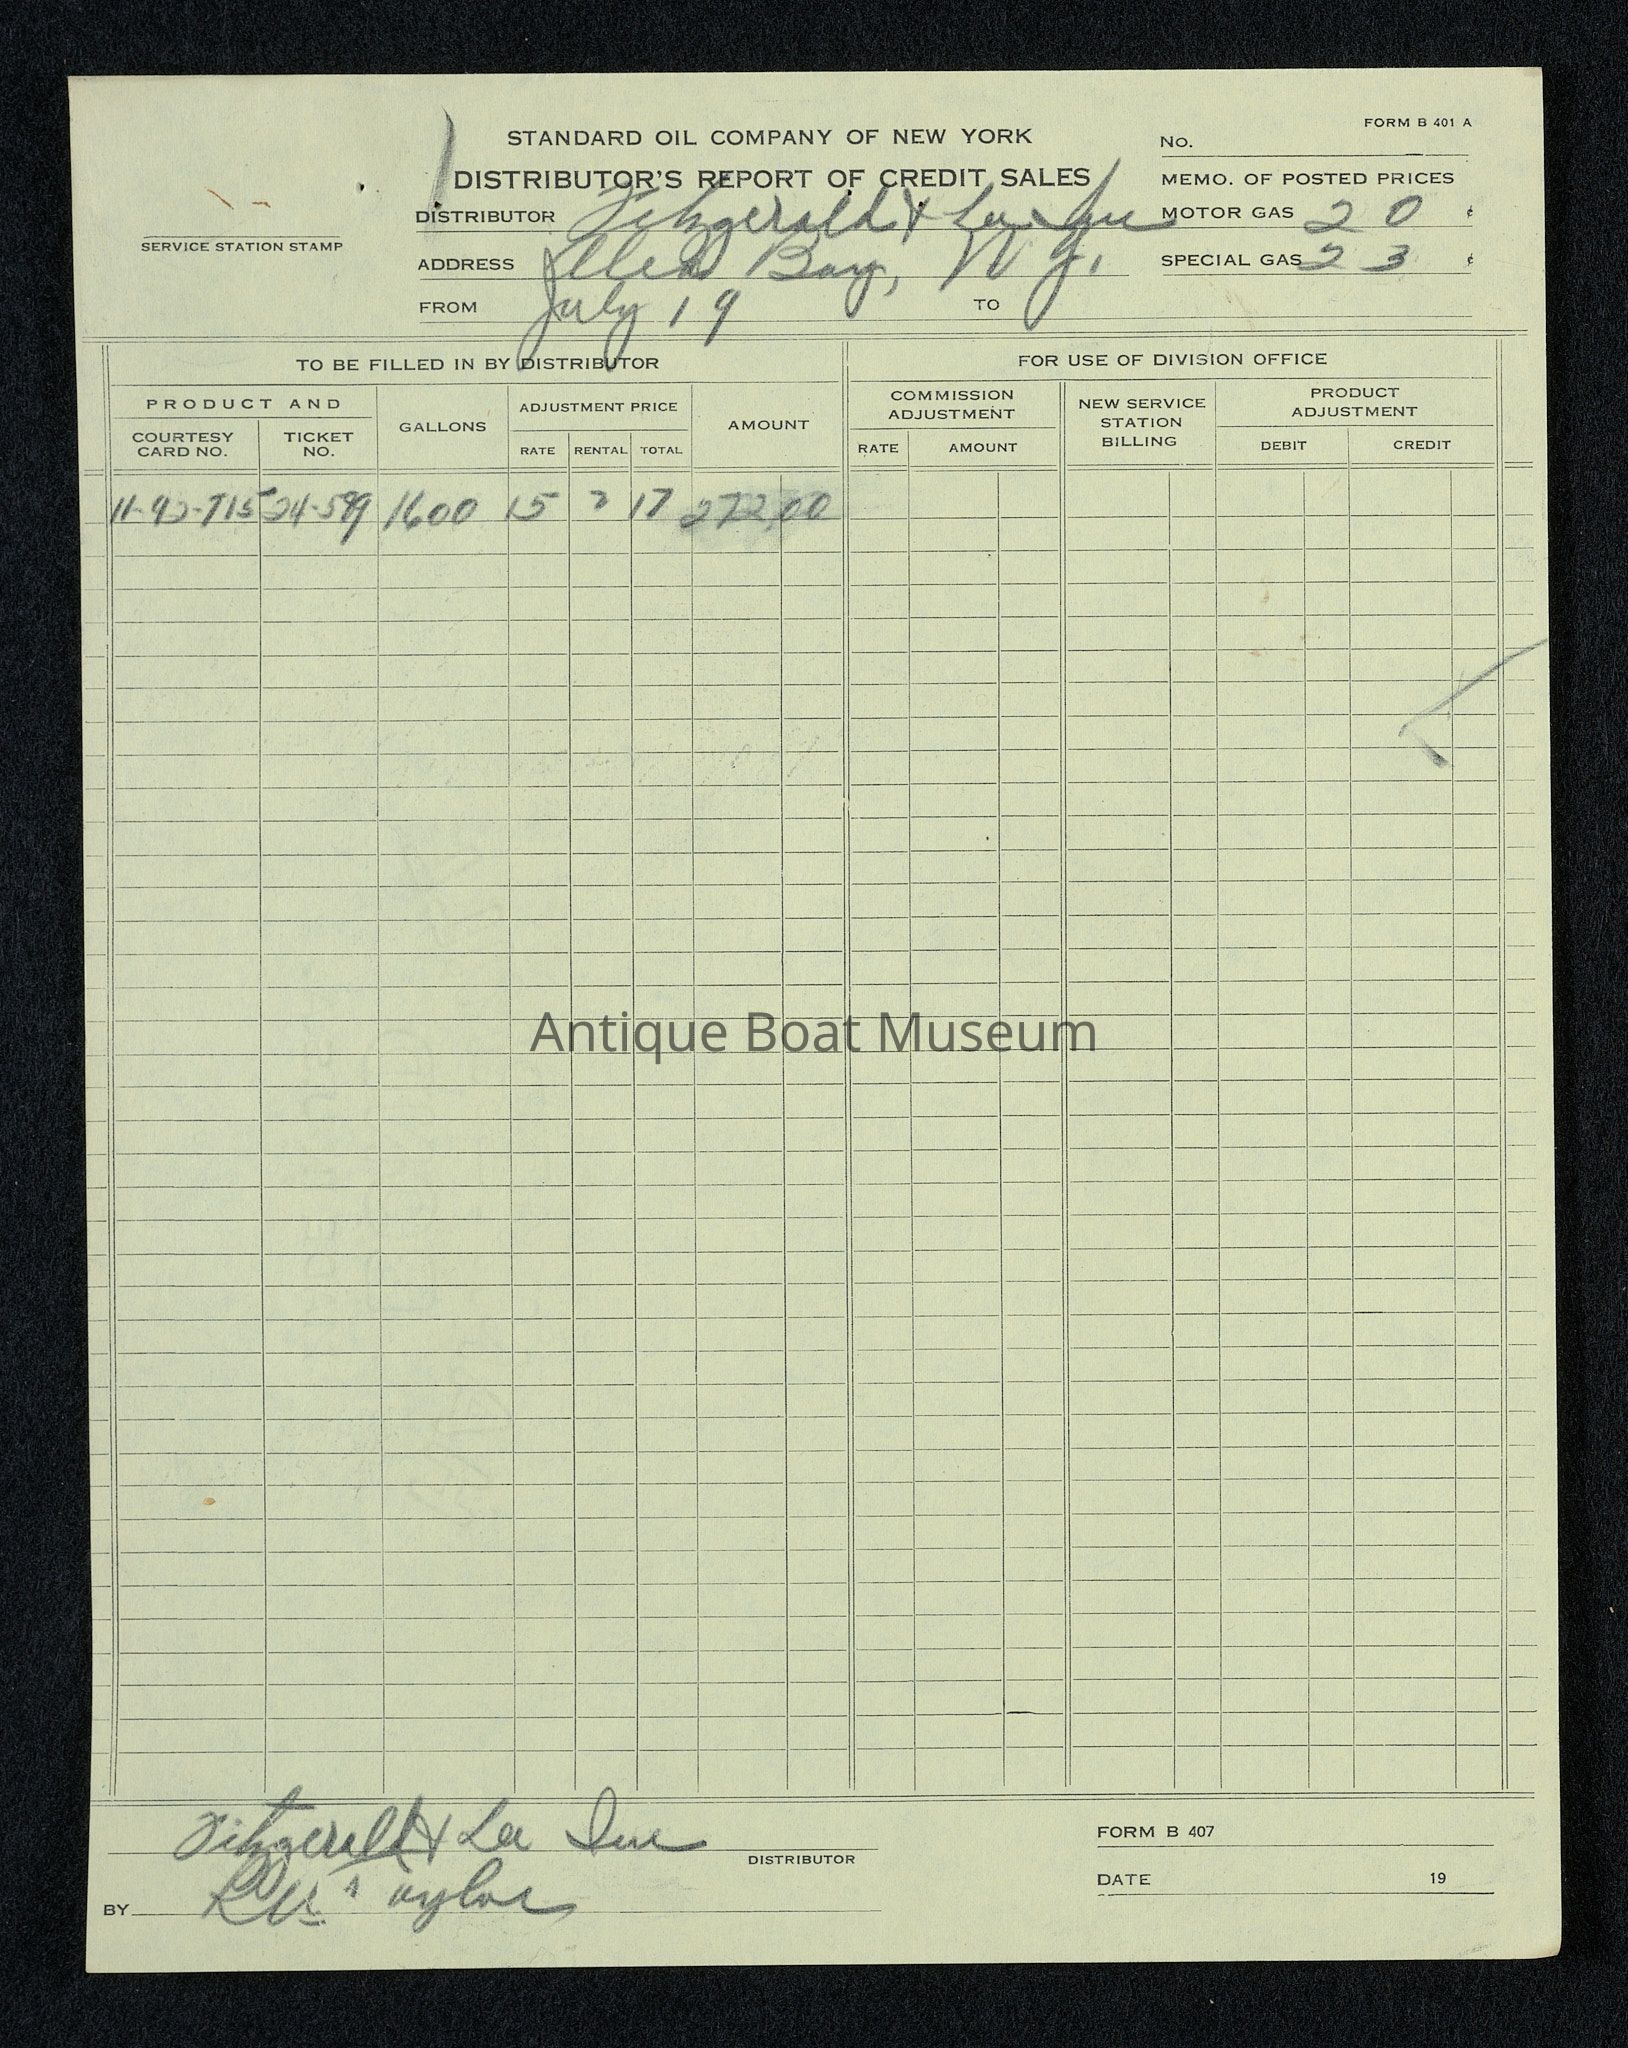 FORM B 401 A
STANDARD OIL COMPANY OF NEW YORK
No.
DISTRIBUTOR'S REPORT OF CREDIT SALES
MEMO. OF POSTED PRICES
DISTRIBUTOR Fitzgerald & Lee Inc
MOTOR GAS 20 ¢
SERVICE STATION STAMP
ADDRESS Alex Bay, N.Y.
SPECIAL GAS 23 ¢
FROM July 19 TO
TO BE FILLED IN BY DISTRIBUTOR
FOR USE OF DIVISION OFFICE
PRODUCT AND
COURTESY CARD NO.
TICKET NO.
GALLONS
ADJUSTMENT PRICE
RATE RENTAL TOTAL
AMOUNT
COMMISSION ADJUSTMENT
RATE AMOUNT
NEW SERVICE STATION BILLING
PRODUCT ADJUSTMENT
DEBIT CREDIT
11-92-715 24-599 1600 15 2 17 272.00
Antique Boat Museum
Fitzgerald & Lee Inc
DISTRIBUTOR
BY Taylor
FORM B 407
DATE 19